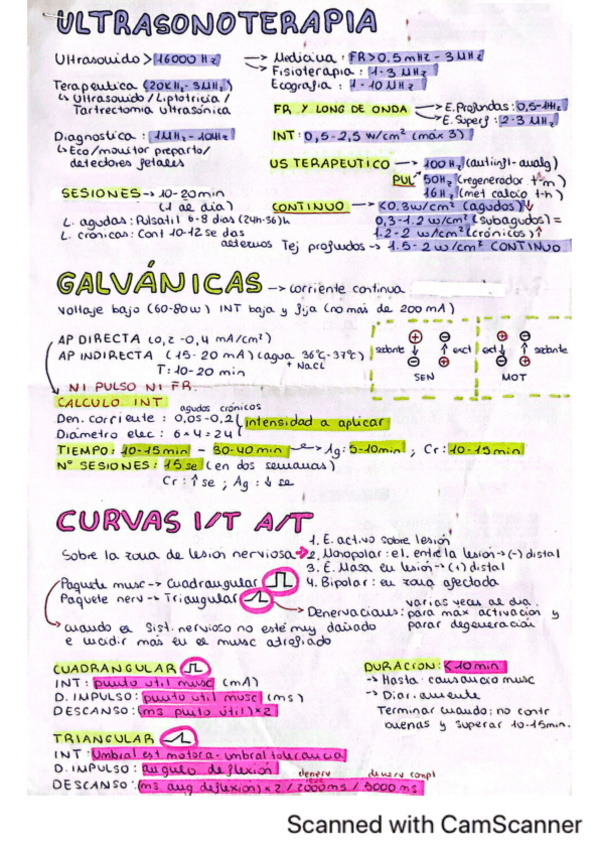 ULTRASONOTERAPIA
Ultrasonido > 16000 Hz
Medicina: FR>0.5 mHz - 3 MHz
Fisioterapia: 1-3 MHz
Ecografia: 1-10 MHz
Terapeutica (20KHz-3MHz)
↳ Ultrasonido / Liptotricia /
Tartrectomia ultrasónica
FR Y LONG DE ONDA → E. Profundas: 0,5-1Hz
→ E. Superf: 2-3 MHz
Diagnostica: 1MHz-10Hz
↳ Eco/monitor preparto/
detectores fetales
INT: 0,5-2,5 w/cm² (máx 3)
US TERAPEUTICO → 100Hz (antiinfl-analg)
PUL 50Hz (regenerador t-m)
16Hz (met calcio t-h)
SESIONES → 10-20min
(1 al dia)
L. agudas: Pulsatil 6-8 dias (24h-36)h
L. crónicas: Cont 10-12 se das
alternos
CONTINUO → <0.3w/cm² (agudos)↓
0,3-1.2 w/cm² (subagudos)=
1.2-2 w/cm² (crónicos)↑
Tej profundos → 1.5-2 w/cm² CONTINUO
GALVÁNICAS → corriente continua
Voltaje bajo (60-80w) INT baja y fija (no más de 200mA)
AP DIRECTA (0,2-0,4 mA/cm²)
AP INDIRECTA (15-20 mA) (agua 36ºC-37º)
+ NaCl
T: 10-20 min
NI PULSO NI FR.
sedante ⊕ ⊖ exct
⊖ ⊕
SEN
exct ⊕ ⊖ sedante
⊖ ⊕
MOT
CALCULO INT
agudos crónicos
Den. corriente: 0,05-0,2 intensidad a aplicar
Diámetro elec: 6×4=24
TIEMPO: 10-15min - 30-40min → Ag: 5-10min; Cr: 10-15min
Nº SESIONES: 15 se (en dos semanas)
Cr: ↑ se; Ag: ↓ se
CURVAS I/T A/T
Sobre la zona de lesión nerviosa →
1. E. activo sobre lesión
2. Monopolar: el. entre la lesión → (-) distal
3. E. Masa en lesión → (+) distal
4. Bipolar: en zona afectada
Paquete musc → Cuadrangular
Paquete nerv → Triangular
→ Denervacianes: varias veces al dia.
para más activación y
parar degeneración
cuando el Sist. nervioso no esté muy dañado
e incidir más en el musc atrofiado
CUADRANGULAR
INT: punto util musc (mA)
D. IMPULSO: punto util musc (ms)
DESCANSO: (ms punto útil)×2
DURACION: <10min
→ Hasta: cansancio musc
→ Diariamente
Terminar cuando: no contr
buenas y superar 10-15min.
TRIANGULAR
INT: Umbral est motora - umbral tolerancia
D. IMPULSO: angulo deflexión
denerv denerv compl
DESCANSO: (ms ang deflexion)×2 / 2000ms / 5000 ms
Scanned with CamScanner